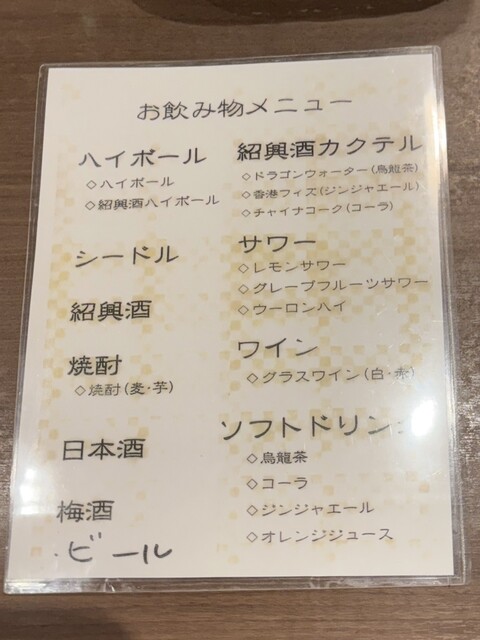 お飲み物メニュー
ハイボール
◇ハイボール
◇紹興酒ハイボール
シードル
紹興酒
焼酎
◇焼酎(麦・芋)
日本酒
梅酒
・ビール
紹興酒カクテル
◇ドラゴンウォーター(烏龍茶)
◇香港フィズ(ジンジャエール)
◇チャイナコーク(コーラ)
サワー
◇レモンサワー
◇グレープフルーツサワー
◇ウーロンハイ
ワイン
◇グラスワイン(白・赤)
ソフトドリンク
◇烏龍茶
◇コーラ
◇ジンジャエール
◇オレンジジュース